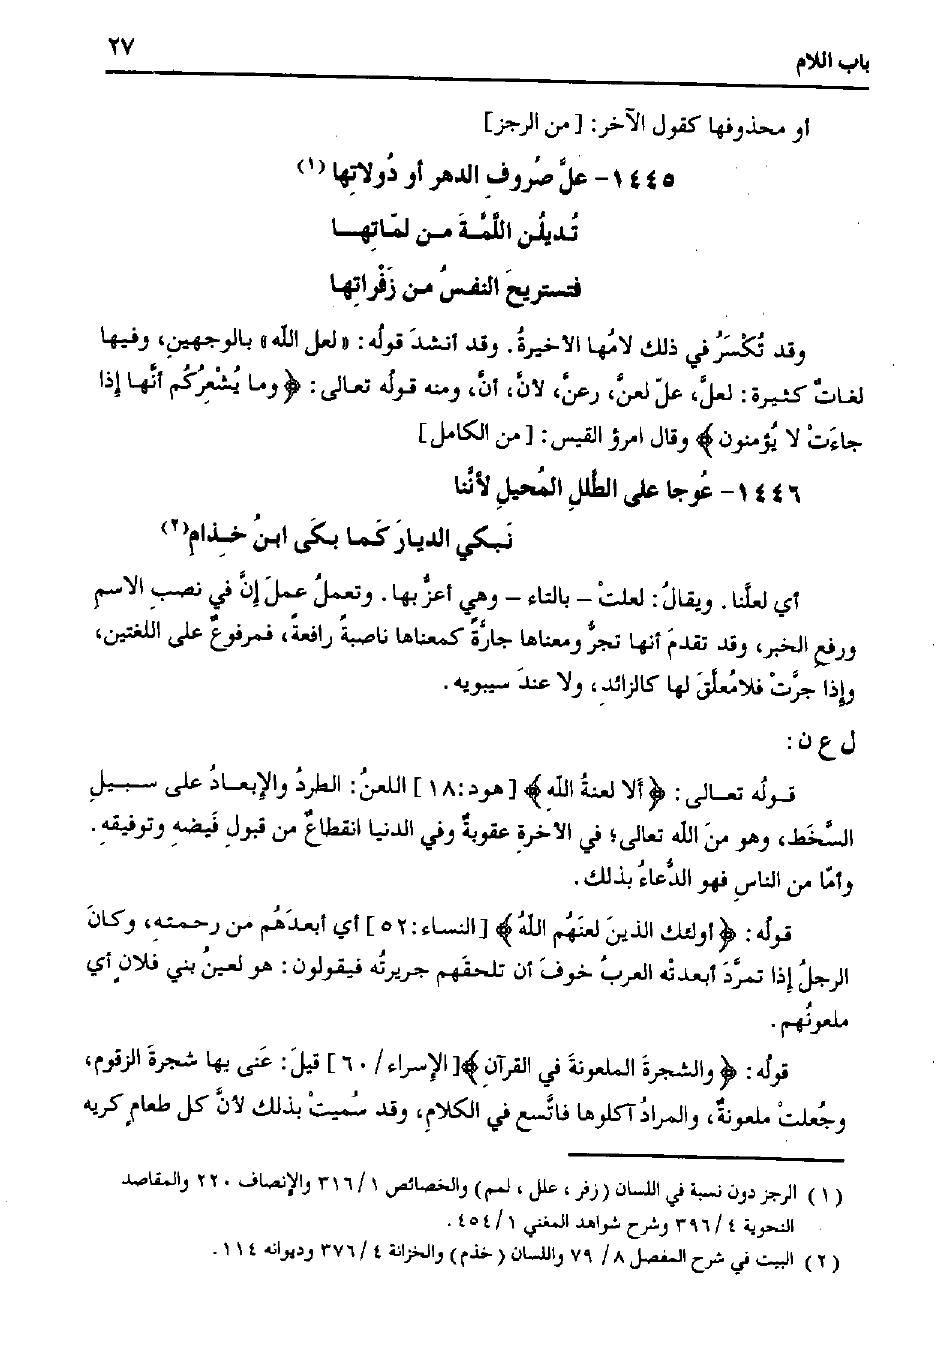 باب اللام
٢٧
أو محذوفها كقول الآخر: [من الرجز]
١٤٤٥- علَّ صُروفِ الدهر أو دُولاتِها (١)
تُـديلُـن اللَّمَّـةَ مـن لمّاتِهـا
فتستريحَ النفسُ من زَفْراتِها
وقد تُكْسَرُ في ذلك لامُها الأخيرةُ. وقد أنشدَ قولُه: «لعل الله» بالوجهين، وفيها
لغاتٌ كثيرة: لعلَّ، علّ لعنَّ، رعنَّ، لأنَّ، أنَّ، ومنه قولُه تعالى: ﴿وما يُشْعِرُكُم أنَّها إذا
جاءَتْ لا يُؤمنون﴾ وقال امرؤ القيس: [من الكامل]
١٤٤٦- عُوجا على الطَّللِ المُحيلِ لأنَّنا
نَبكي الديارَ كَما بكَى ابنُ خـذام(٢)
أي لعلَّنا. ويقالُ: لعلتْ - بالتاء - وهي أعزُّ بها. وتعملُ عملَ إنَّ في نصبِ الاسمِ
ورفعِ الخبر، وقد تقدمَ أنها تجرُّ ومعناها جارَّةً كمعناها ناصبةً رافعةً، فمرفوعٌ على اللغتين،
وإذا جرَّتْ فلا مُعلَّقَ لها كالزائدِ، ولا عندَ سيبويه.
ل ع ن:
قـولُه تعـالى: ﴿ألا لعنةُ اللَّه﴾ [هود:١٨] اللعنُ: الطردُ والإبعـادُ على سـبيلِ
السَّخَط، وهو منَ اللَّه تعالى؛ في الآخرةِ عقوبةٌ وفي الدنيا انقطاعٌ من قبولِ فَيضهِ وتوفيقهِ.
وأمّا من الناسِ فهو الدُّعاءُ بذلك.
قولُه: ﴿أولئك الذينَ لعنَهُم اللَّهُ﴾ [النساء:٥٢] أي أبعدَهُم من رحمتهِ، وكانَ
الرجلُ إذا تمرَّدَ أبعدتْه العربُ خوفَ أن تلحقَهم جريرتُه فيقولون: هو لعينُ بني فلانٍ أي
ملعونُهم.
قولُه: ﴿والشجرةَ الملعونةَ في القرآنِ﴾[الإسراء/ ٦٠] قيلَ: عَنى بها شجرةَ الزقوم،
وجُعلتْ ملعونةً، والمرادُ آكلوها فاتَّسع في الكلامِ، وقد سُميتْ بذلك لأنَّ كل طعامٍ كريه
(١) الرجز دون نسبة في اللسان (زفر، علل، لمم) والخصائص ١/ ٣١٦ والإنصاف ٢٢٠ والمقاصد
النحوية ٤/ ٣٩٦ وشرح شواهد المغني ١/ ٤٥٤.
(٢) البيت في شرح المفصل ٨/ ٧٩ واللسان (خذم) والخزانة ٤/ ٣٧٦ وديوانه ١١٤.